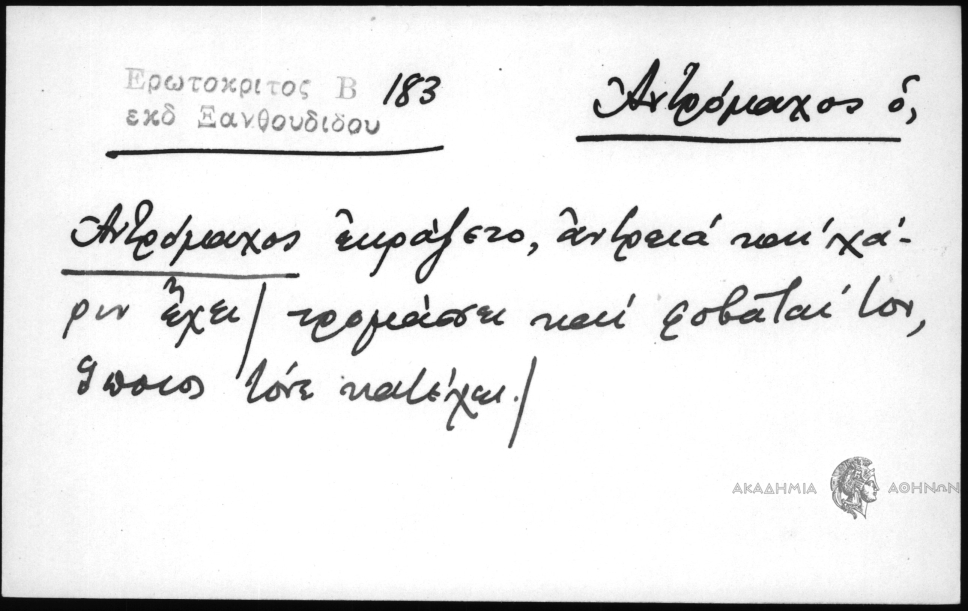 Ερωτοκριτος Β 183
εκδ Ξανθουδιδου
Ἀντρόμαχος ὁ,
Ἀντρόμαχος ἐκράζετο, ἀντρειά καί χά-
ριν ἔχει / τρομάσσει καί φοβᾶταί τον,
ὅποιος τόνε κατέχει. /
ΑΚΑΔΗΜΙΑ ΑΘΗΝΩΝ